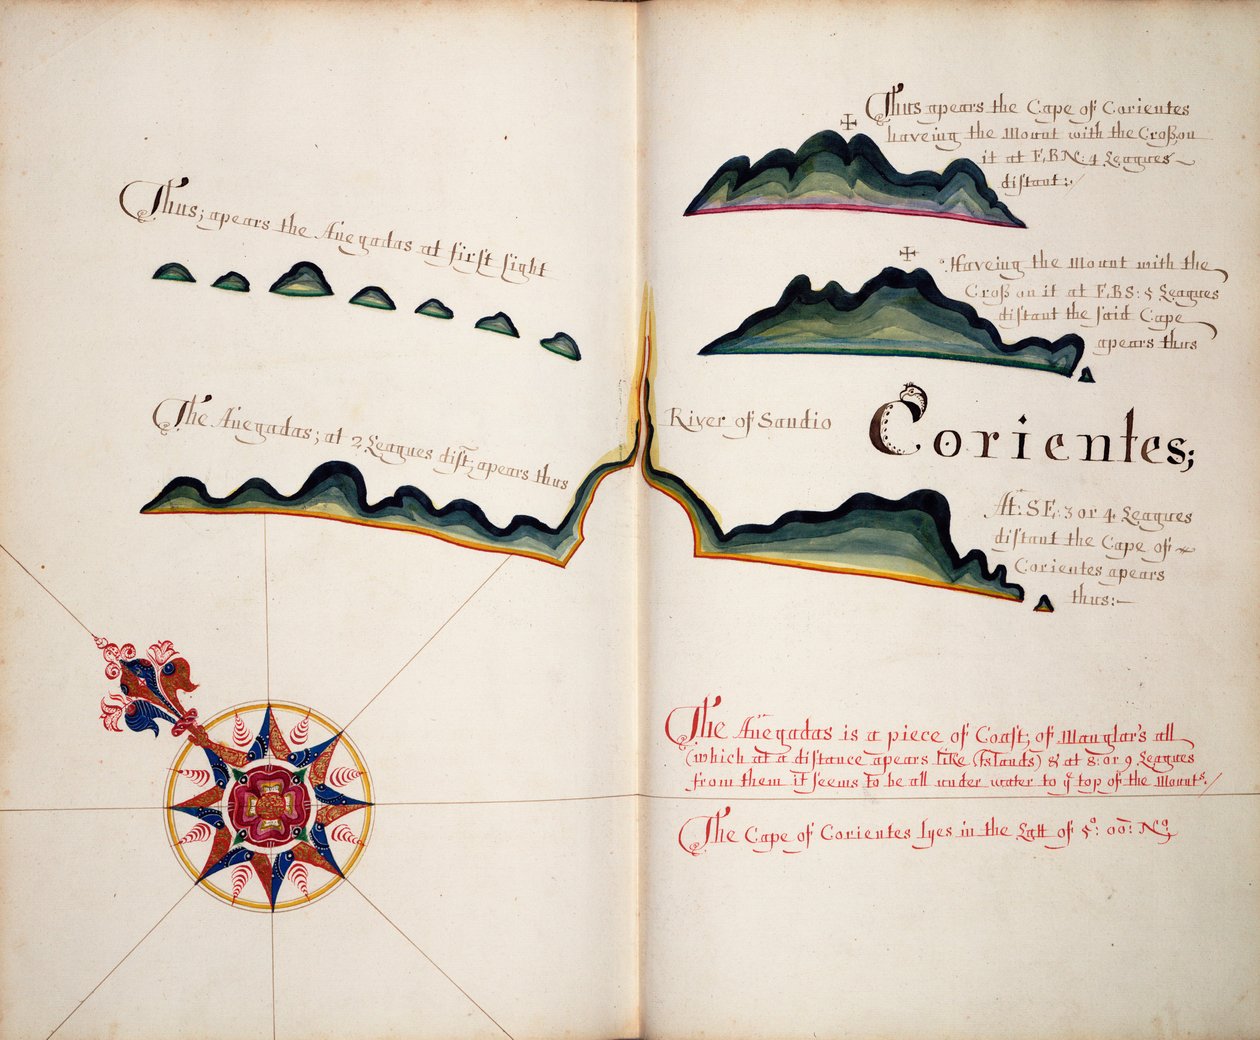 Thus; apears the Anegadas at first sight
The Anegadas; at 2 Leagues dist; apears thus
Thus apears the Cape of Corientes
haveing the Mount with the Cross on
it at E,BN: 4 Leagues
distant:
Haveing the Mount with the
Cross on it at E,BS: 5 Leagues
distant the said Cape
apears thus
River of Sandio
Corientes;
At: SE: 3 or 4 Leagues
distant the Cape of
Corientes apears
thus:
The Anegadas is a piece of Coast; of Manglar's all
(which at a distance apears like Islands) & at 8: or 9 Leagues
from them it seems to be all under water to yᵉ top of the Mountˢ.
The Cape of Corientes lyes in the Latt of 5°: 00: Nº